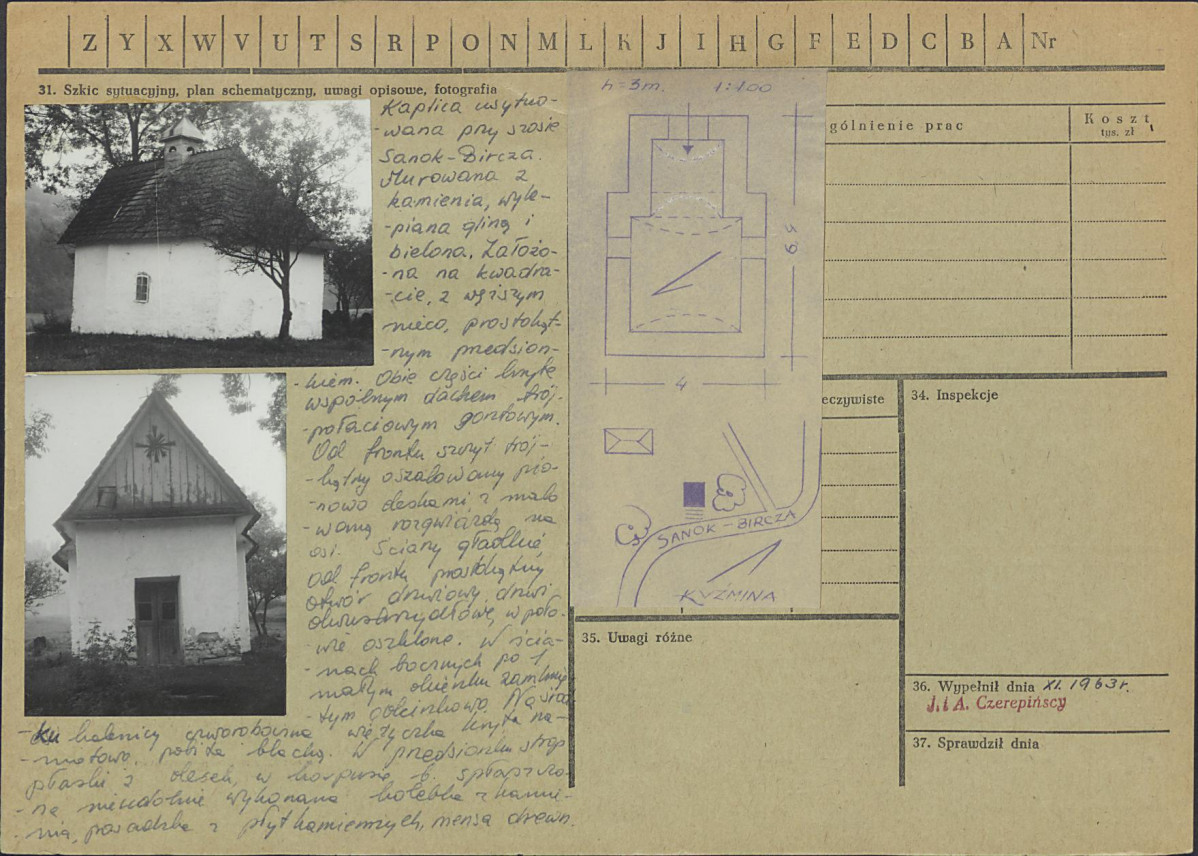 Z Y X W V U T S R P O N M L K J I H G F E D C B A Nr
31. Szkic sytuacyjny, plan schematyczny, uwagi opisowe, fotografia
Kaplica usytuo-
-wana przy szosie
Sanok-Bircza.
Murowana z
kamienia, wyle-
-piana gliną i
bielona. Założo-
-na na kwadra-
-cie, z węższym
nieco, prostokąt-
-nym przedsion-
-kiem. Obie części kryte
wspólnym dachem trój-
-połaciowym gontowym.
Od frontu szczyt trój-
-kątny oszalowany pio-
-nowo deskami, z malo
-waną rozgwiazdą na
osi. Ściany gładkie
od frontu prostokątny
otwór drzwiowy, drzwi
dwuskrzydłowe, w poło-
-wie oszklone. W ścia-
-nach bocznych po 1
małym okienku zamknię
-tym odcinkowo. Na siod
-ku kalenicy czworoboczna wieżyczka kryta na-
-miotowo, pobita blachą. W przedsionku strop
płaski z desek, w korpusie b. spłaszczo-
-na nieudolnie wykonana kolebka z kamie-
-nia, posadzka z płyt kamiennych, mensa drewn.
h=3m. 1:100
6,5
4
SANOK - BIRCZA
KUŹMINA
gólnienie prac
Koszt
tys. zł
eczywiste
34. Inspekcje
35. Uwagi różne
36. Wypełnił dnia XI. 1963r.
J. i A. Czerepińscy
37. Sprawdził dnia